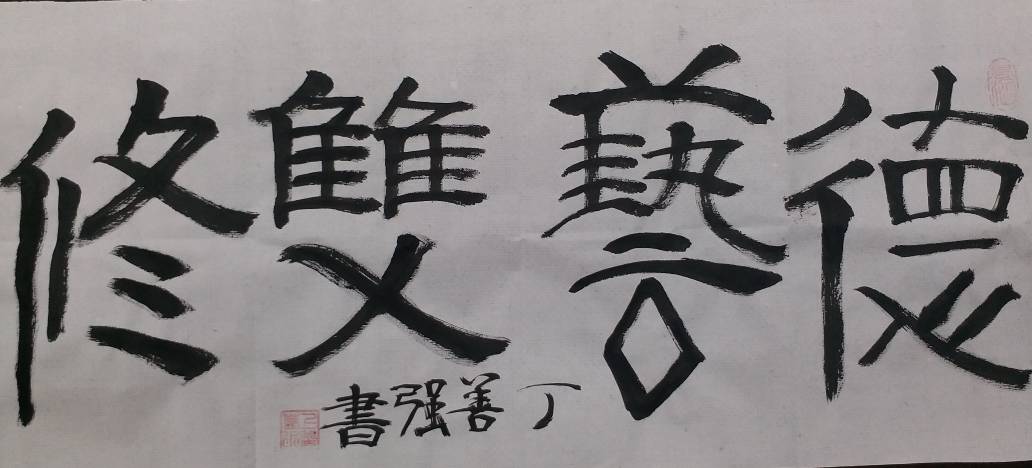 德藝雙修
丁善强書